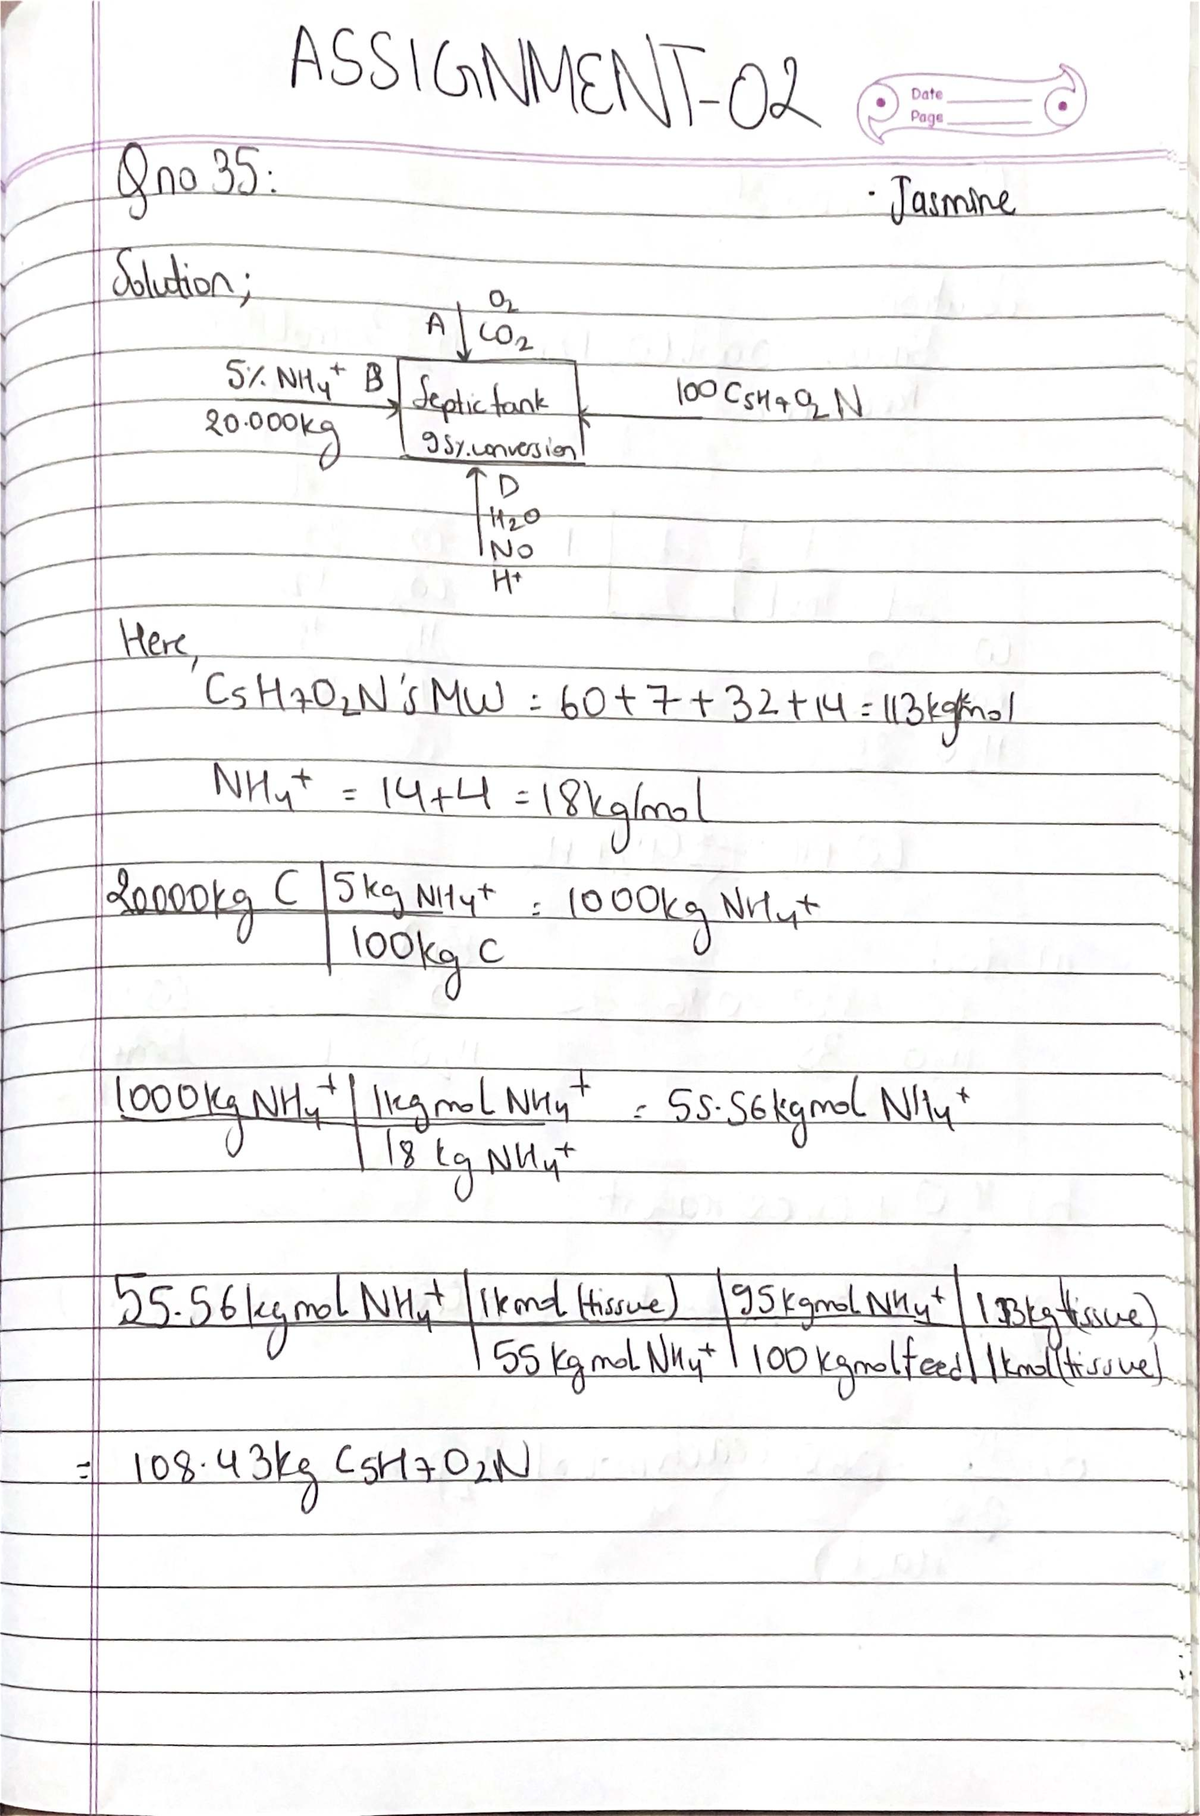 ASSIGNMENT-02
Date
Page
Qno 35:
· Jasmine
Solution;
O2
A CO2
5% NH4+ B
20.000kg
Septic tank
95% conversion
100 C5H7O2N
D
H2O
NO
H+
Here,
C5H7O2N's MW = 60+7+32+14 = 113kg/mol
NH4+ = 14+4 = 18kg/mol
20000kg C | 5kg NH4+ = 1000kg NH4+
100kg C
1000kg NH4+ | 1kgmol NH4+ = 55.56kgmol NH4+
18 kg NH4+
55.56 kgmol NH4+ | 1kmol (tissue) | 95kgmol NH4+ | 113kg tissue)
55 kgmol NH4+ | 100 kgmol feed | 1kmol(tissue)
= 108.43kg C5H7O2N